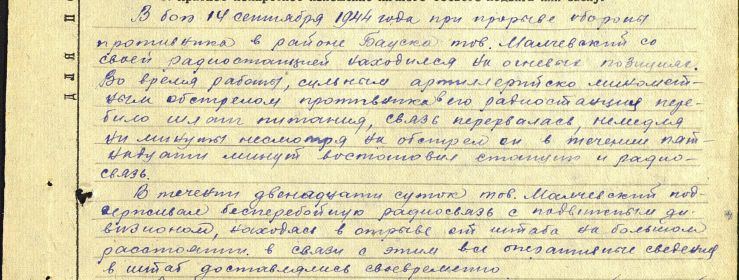 В бою 14 сентября 1944 года при прорыве обороны
противника в районе Бауска тов. Малчевский со
своей радиостанцией находился на огневых позициях.
Во время работы, сильным артиллерийско миномет-
ным обстрелом противника его радиостанции пере-
било шланг питания, связь перервалась, немедля
ни минуты несмотря на обстрел он в течении пят-
надцати минут востоновил станцию и радио-
связь.
В течении двенадцати суток тов. Малчевский под-
держивал бесперебойную радиосвязь с подвижным ди-
визионом, находясь в отрыве от штаба на большом
расстоянии. в связи с этим все оперативные сведения
в штаб доставлялись своевременно
ДЛЯ ПО